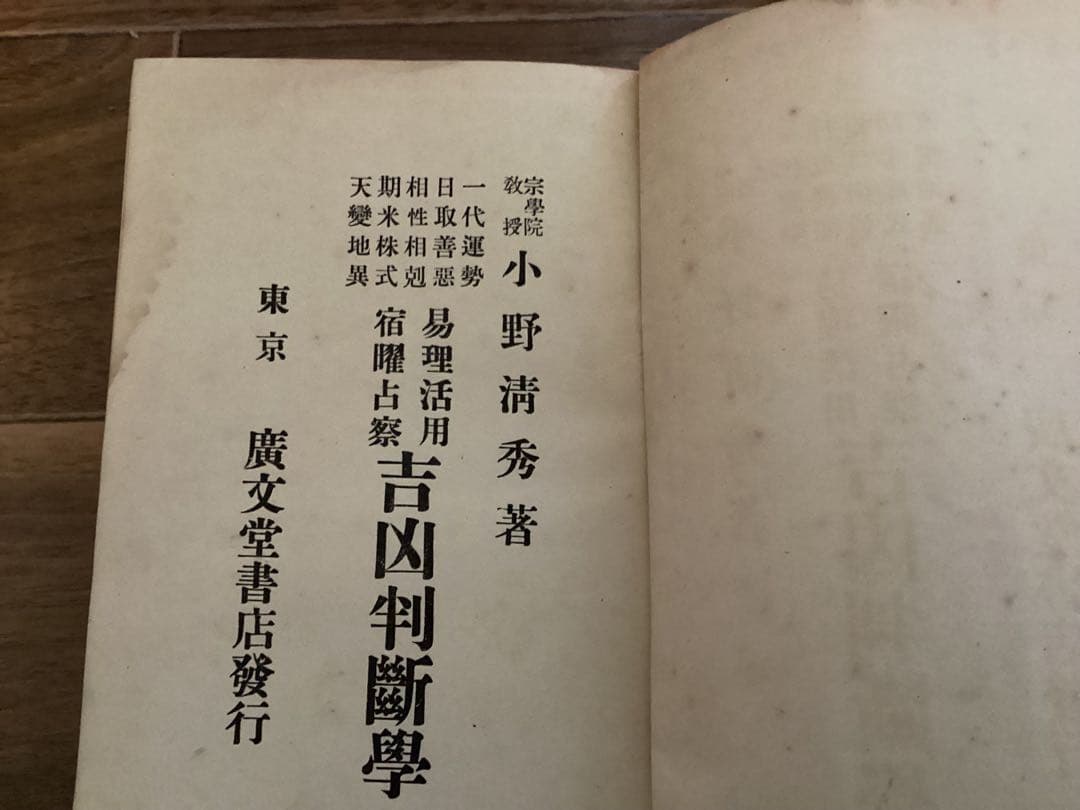 宗學院
教授
小野淸秀著
一代運勢
日取善惡
相性相剋
期米株式
天變地異
易理活用
宿曜占察
吉凶判斷學
東京 廣文堂書店發行